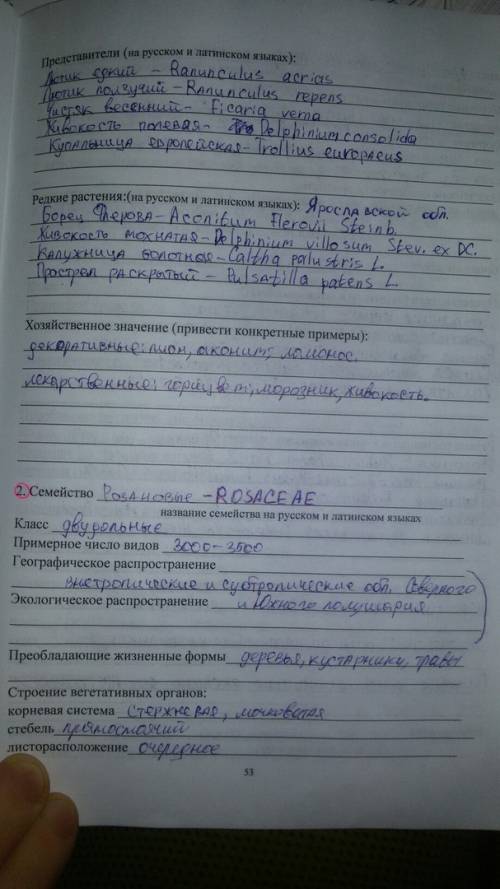 Представители (на русском и латинском языках):
Лютик едкий – Ranunculus acrias
Лютик ползучий – Ranunculus repens
Чистяк весенний – Ficaria verna
Живокость полевая – Delphinium consolida
Купальница европейская – Trollius europaeus
Редкие растения:(на русском и латинском языках): Ярославской обл.
Борец Флерова – Aconitum Flerovii Steinb.
Живокость мохнатая – Delphinium villosum Stev. ex DC.
Калужница болотная – Caltha palustris L.
Прострел раскрытый – Pulsatilla patens L
Хозяйственное значение (привести конкретные примеры):
декоративные: пион, аконит, ломонос.
лекарственные: горицвет, морозник, живокость.
2. Семейство Розановые – ROSACEAE
название семейства на русском и латинском языках
Класс двудольные
Примерное число видов 3000–3500
Географическое распространение
внетропические и субтропические обл. Северного
Экологическое распространение и Южного полушария
Преобладающие жизненные формы деревья, кустарники, травы
Строение вегетативных органов:
корневая система стержневая, мочковатая
стебель прямостоячий
листорасположение очередное
53